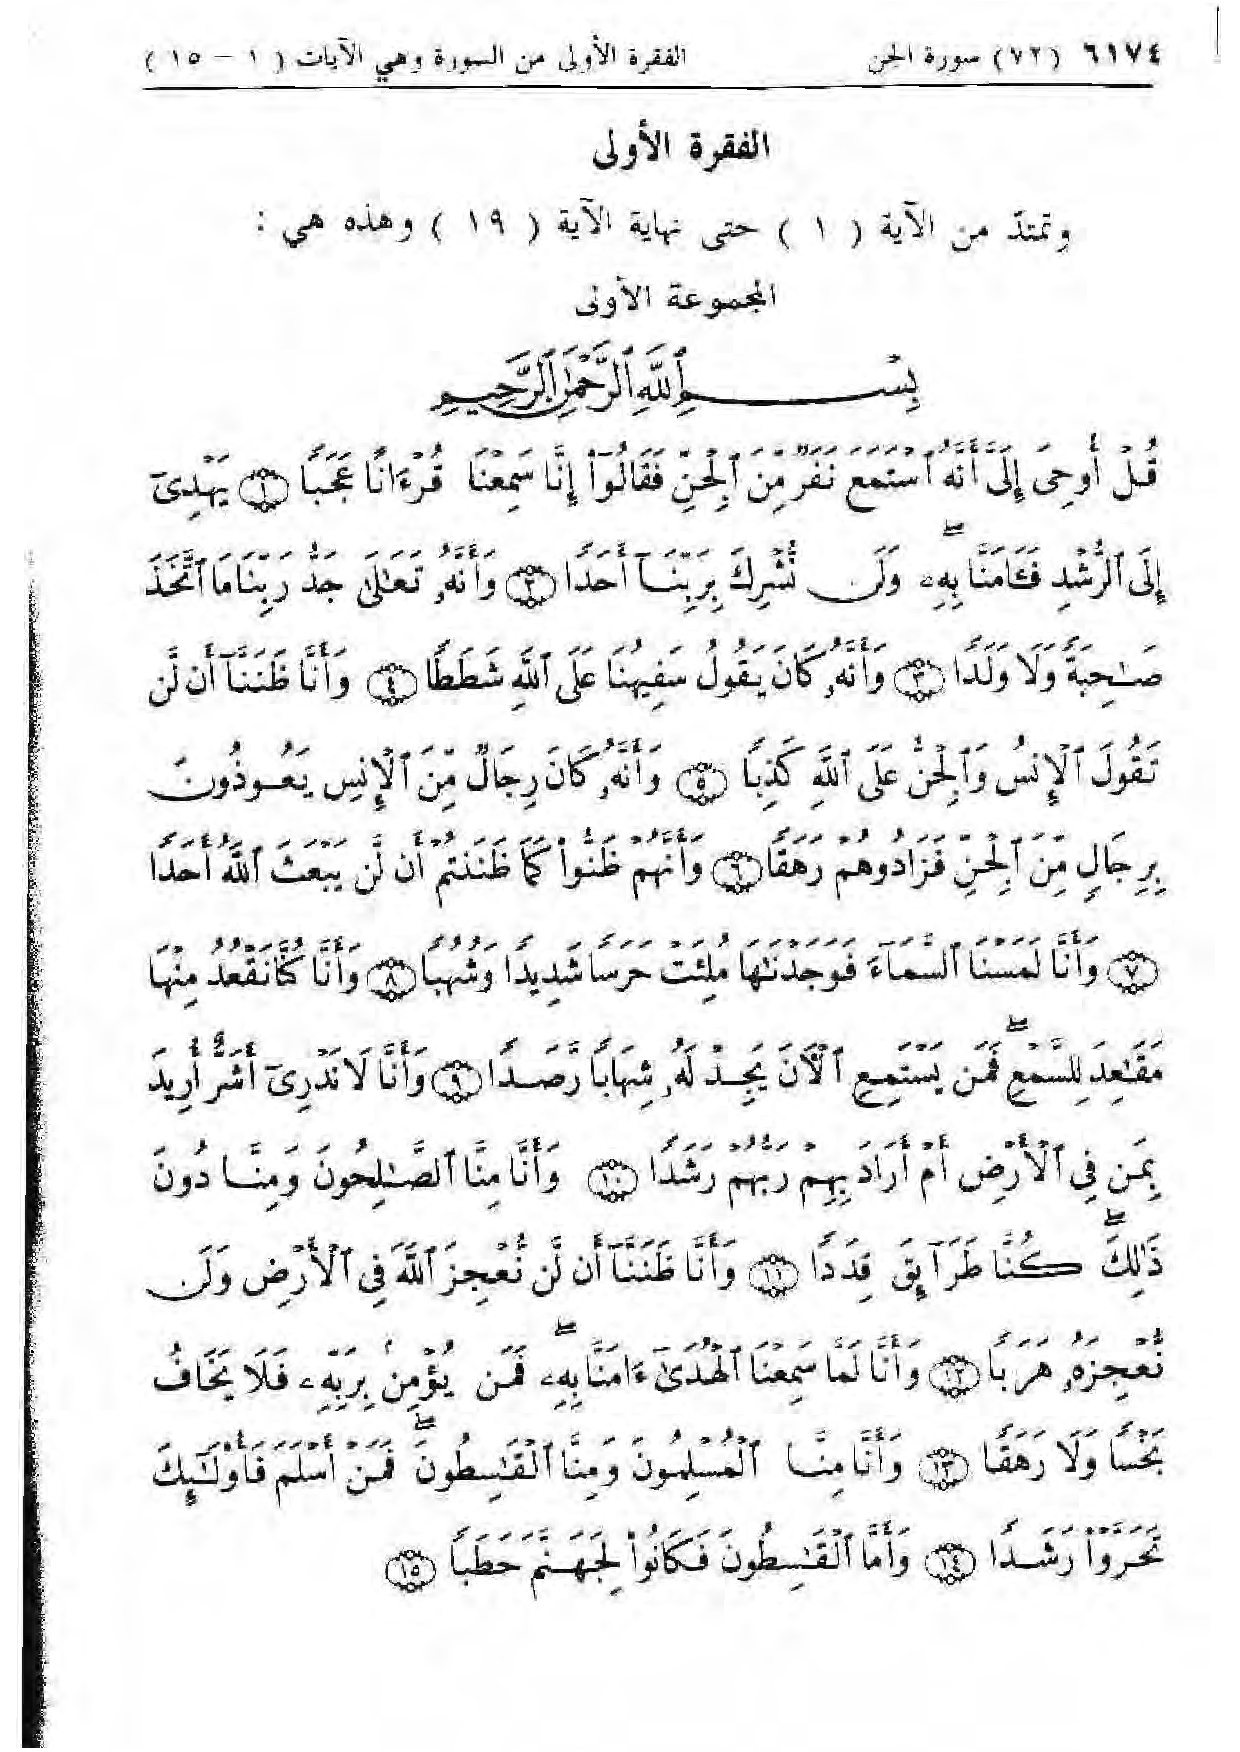 ٦١٧٤ (٧٢) سورة الجن الفقرة الأولى من السورة وهي الآيات ( ١ – ١٥ )
الفقرة الأولى
وتمتدّ من الآية ( ١ ) حتى نهاية الآية ( ١٩ ) وهذه هي :
المجموعة الأولى
بِسْمِ ٱللَّهِ ٱلرَّحْمَٰنِ ٱلرَّحِيمِ
قُلْ أُوحِىَ إِلَىَّ أَنَّهُ ٱسْتَمَعَ نَفَرٌ مِّنَ ٱلْجِنِّ فَقَالُوٓا۟ إِنَّا سَمِعْنَا قُرْءَانًا عَجَبًا ﴿١﴾ يَهْدِىٓ
إِلَى ٱلرُّشْدِ فَـَٔامَنَّا بِهِۦ ۖ وَلَن نُّشْرِكَ بِرَبِّنَآ أَحَدًا ﴿٢﴾ وَأَنَّهُۥ تَعَٰلَىٰ جَدُّ رَبِّنَا مَا ٱتَّخَذَ
صَٰحِبَةً وَلَا وَلَدًا ﴿٣﴾ وَأَنَّهُۥ كَانَ يَقُولُ سَفِيهُنَا عَلَى ٱللَّهِ شَطَطًا ﴿٤﴾ وَأَنَّا ظَنَنَّآ أَن لَّن
تَقُولَ ٱلْإِنسُ وَٱلْجِنُّ عَلَى ٱللَّهِ كَذِبًا ﴿٥﴾ وَأَنَّهُۥ كَانَ رِجَالٌ مِّنَ ٱلْإِنسِ يَعُوذُونَ
بِرِجَالٍ مِّنَ ٱلْجِنِّ فَزَادُوهُمْ رَهَقًا ﴿٦﴾ وَأَنَّهُمْ ظَنُّوا۟ كَمَا ظَنَنتُمْ أَن لَّن يَبْعَثَ ٱللَّهُ أَحَدًا
﴿٧﴾ وَأَنَّا لَمَسْنَا ٱلسَّمَآءَ فَوَجَدْنَٰهَا مُلِئَتْ حَرَسًا شَدِيدًا وَشُهُبًا ﴿٨﴾ وَأَنَّا كُنَّا نَقْعُدُ مِنْهَا
مَقَٰعِدَ لِلسَّمْعِ ۖ فَمَن يَسْتَمِعِ ٱلْـَٔانَ يَجِدْ لَهُۥ شِهَابًا رَّصَدًا ﴿٩﴾ وَأَنَّا لَا نَدْرِىٓ أَشَرٌّ أُرِيدَ
بِمَن فِى ٱلْأَرْضِ أَمْ أَرَادَ بِهِمْ رَبُّهُمْ رَشَدًا ﴿١٠﴾ وَأَنَّا مِنَّا ٱلصَّٰلِحُونَ وَمِنَّا دُونَ
ذَٰلِكَ ۖ كُنَّا طَرَآئِقَ قِدَدًا ﴿١١﴾ وَأَنَّا ظَنَنَّآ أَن لَّن نُّعْجِزَ ٱللَّهَ فِى ٱلْأَرْضِ وَلَن
نُّعْجِزَهُۥ هَرَبًا ﴿١٢﴾ وَأَنَّا لَمَّا سَمِعْنَا ٱلْهُدَىٰٓ ءَامَنَّا بِهِۦ ۖ فَمَن يُؤْمِنۢ بِرَبِّهِۦ فَلَا يَخَافُ
بَخْسًا وَلَا رَهَقًا ﴿١٣﴾ وَأَنَّا مِنَّا ٱلْمُسْلِمُونَ وَمِنَّا ٱلْقَٰسِطُونَ ۖ فَمَنْ أَسْلَمَ فَأُو۟لَٰٓئِكَ
تَحَرَّوْا۟ رَشَدًا ﴿١٤﴾ وَأَمَّا ٱلْقَٰسِطُونَ فَكَانُوا۟ لِجَهَنَّمَ حَطَبًا ﴿١٥﴾